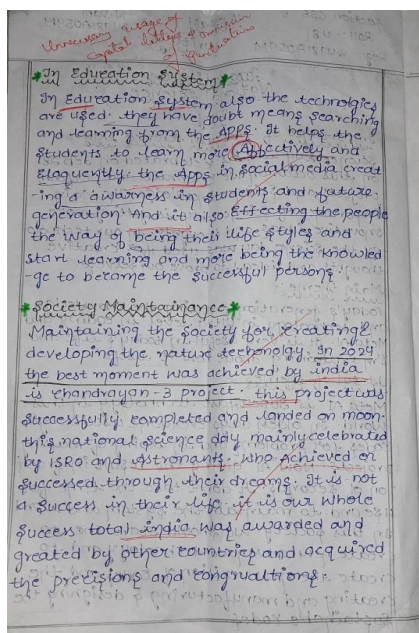 Unnecessary usage of
Capital letters & omission
of Punctuations
*In Education System*
In Education System also the technolgies
are used. they have doubt means searching
and learning from the Apps. It helps the
students to learn more Affectively and
Elaquently. the Apps in social media creat
-ing a awarness in students and future
generation And it also Effecting the people
the way of being their life styles and
start learning and more being the knowled
-ge to became the successful persons
*Society Maintainance*
Maintaining the Society for creating &
developing the nature techonolgy. In 2024
the best moment was achieved by india
is chandrayan-3 project. this project was
successfully completed and landed on moon.
this national science day mainly celebrated
by ISRO and Astronants. who Achieved or
successed through their dreams. It is not
a success in their life it is our whole
success total india was awarded and
greated by other countries and acquired
the precisions and congrualtions.